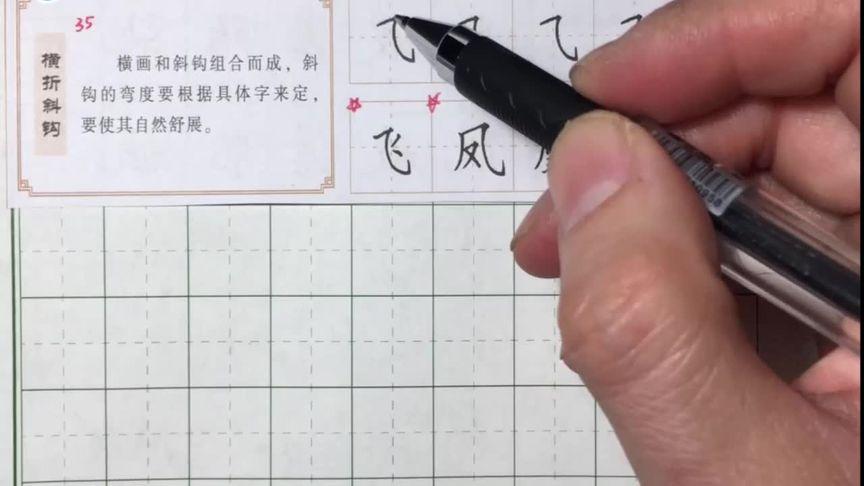 35
横折斜钩
横画和斜钩组合而成，斜
钩的弯度要根据具体字来定，
要使其自然舒展。
⺄ ⺄ ⺄
飞 凤